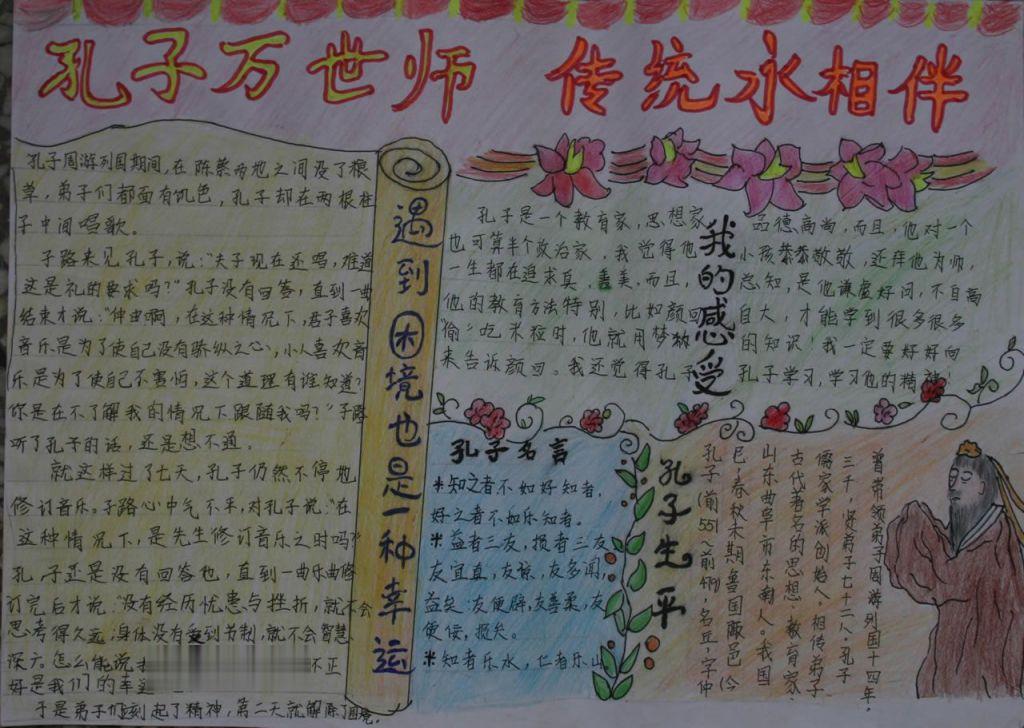 孔子万世师 传统永相伴
孔子周游列国期间，在陈蔡两地之间没了粮
草，弟子们都面有饥色，孔子却在两根柱
子中间唱歌。
子路来见孔子，说：“夫子现在还唱，难道
这是礼的要求吗？”孔子没有回答，直到一曲
结束才说：“仲由啊，在这种情况下，君子喜欢
音乐是为了使自己没有骄纵之心，小人喜欢音
乐是为了使自己不害怕，这个道理有谁知道？
你是在不了解我的情况下跟随我吗？”子路
听了孔子的话，还是想不通。
就这样过了七天，孔子仍然不停地
修订音乐。子路心中气不平，对孔子说：“在
这种情况下，是先生修订音乐之时吗？
孔子还是没有回答他，直到一曲乐曲修
订完后才说：“没有经历忧患与挫折，就不会
思考得久远；身体没有受到节制，就不会智慧
深广。怎么能说 不正
好是我们的幸
于是弟子们立刻起了精神，第二天就解除了困境。
遇到困境也是一种幸运
我的感受
孔子是一个教育家，思想家
也可算半个政治家，我觉得他
一生都在追求真、善美，而且，
他的教育方法特别，比如颜回
“偷”吃米粒时，他就用梦
来告诉颜回。我还觉得孔子
品德高尚，而且，他对一个
小孩恭恭敬敬，还拜他为师，
总知，是他谦虚好问，不自高
自大，才能学到很多很多
的知识！我一定要好好向
孔子学习，学习他的精神！
孔子名言
*知之者不如好知者，
好之者不如乐知者。
*益者三友，损者三友
友宜直，友谅，友多闻，
益矣：友便辟，友善柔，友
便佞，损矣。
*知者乐水，仁者乐山
孔子生平
孔子（前551~前479），名丘，字仲
尼，春秋末期鲁国陬邑（今
山东曲阜市东南人。我国
古代著名的思想、教育家、
儒家学派创始人。相传弟子
三千，贤弟子七十二人，孔子
曾带领弟子周游列国十四年。